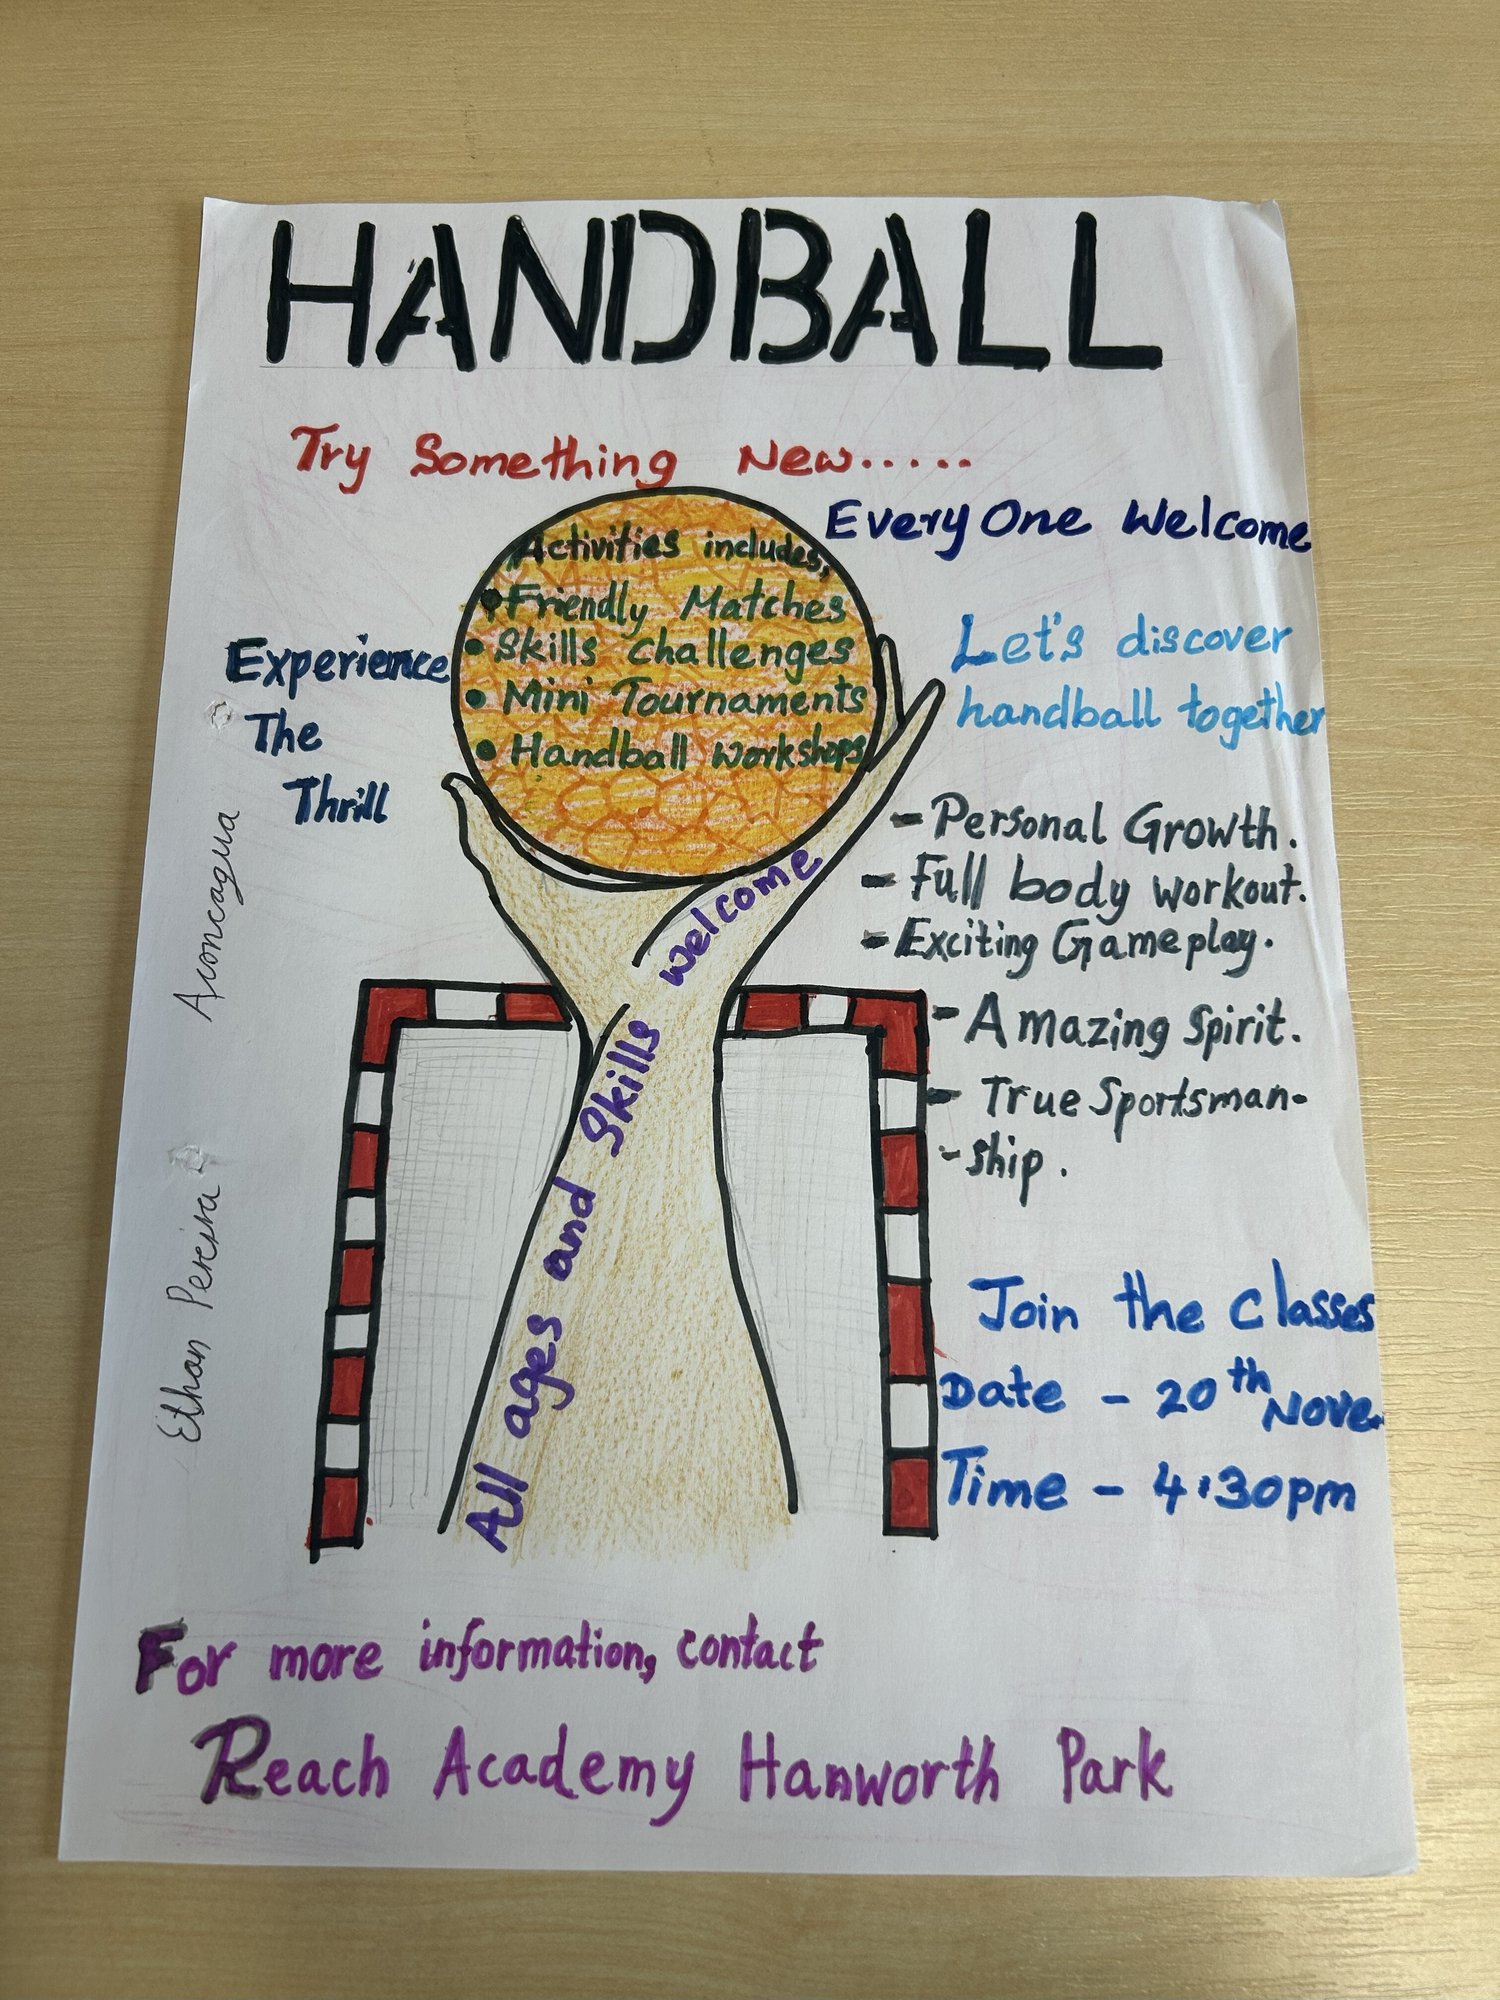 HANDBALL
Try Something New.....
Every One Welcome
Activities includes,
• Friendly Matches
• Skills challenges
• Mini Tournaments
• Handball workshops
Experience
The
Thrill
Let's discover
handball together
- Personal Growth.
- Full body workout.
- Exciting Gameplay.
- Amazing Spirit.
- True Sportsman-
-ship.
All ages and Skills welcome
Join the classes
Date - 20th Nove.
Time - 4:30pm
Ethan Pereira Aconcagua
For more information, contact
Reach Academy Hanworth Park